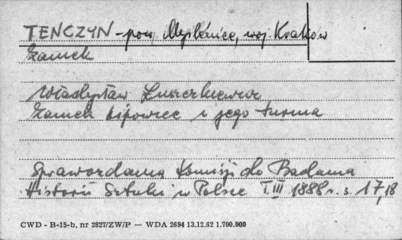 TENCZYN - pow. Myślenice, woj. Kraków
Zamek
Władysław Łuszczkiewicz
Zamek Lipowiec i jego turma
Sprawozdania Komisji do Badania
Historii Sztuki w Polsce T. III 1888 r. s. 17, 18
CWD - B-15-b, nr 2827/ZW/P — WDA 2694 13.12.62 1.700.000